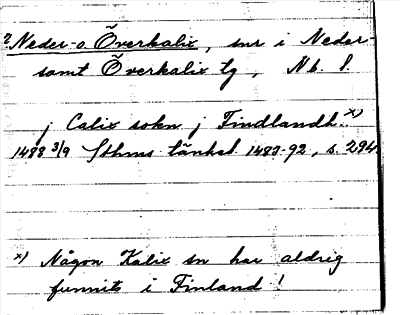 ? Neder- o. Överkalix, snr i Neder-
samt Överkalix tg, Nb. l.
j Calix sokn j Findlandh. x)
1488 3/9 Sthms tänkeb. 1483-92, s. 294
x) Någon Kalix sn har aldrig
funnits i Finland!